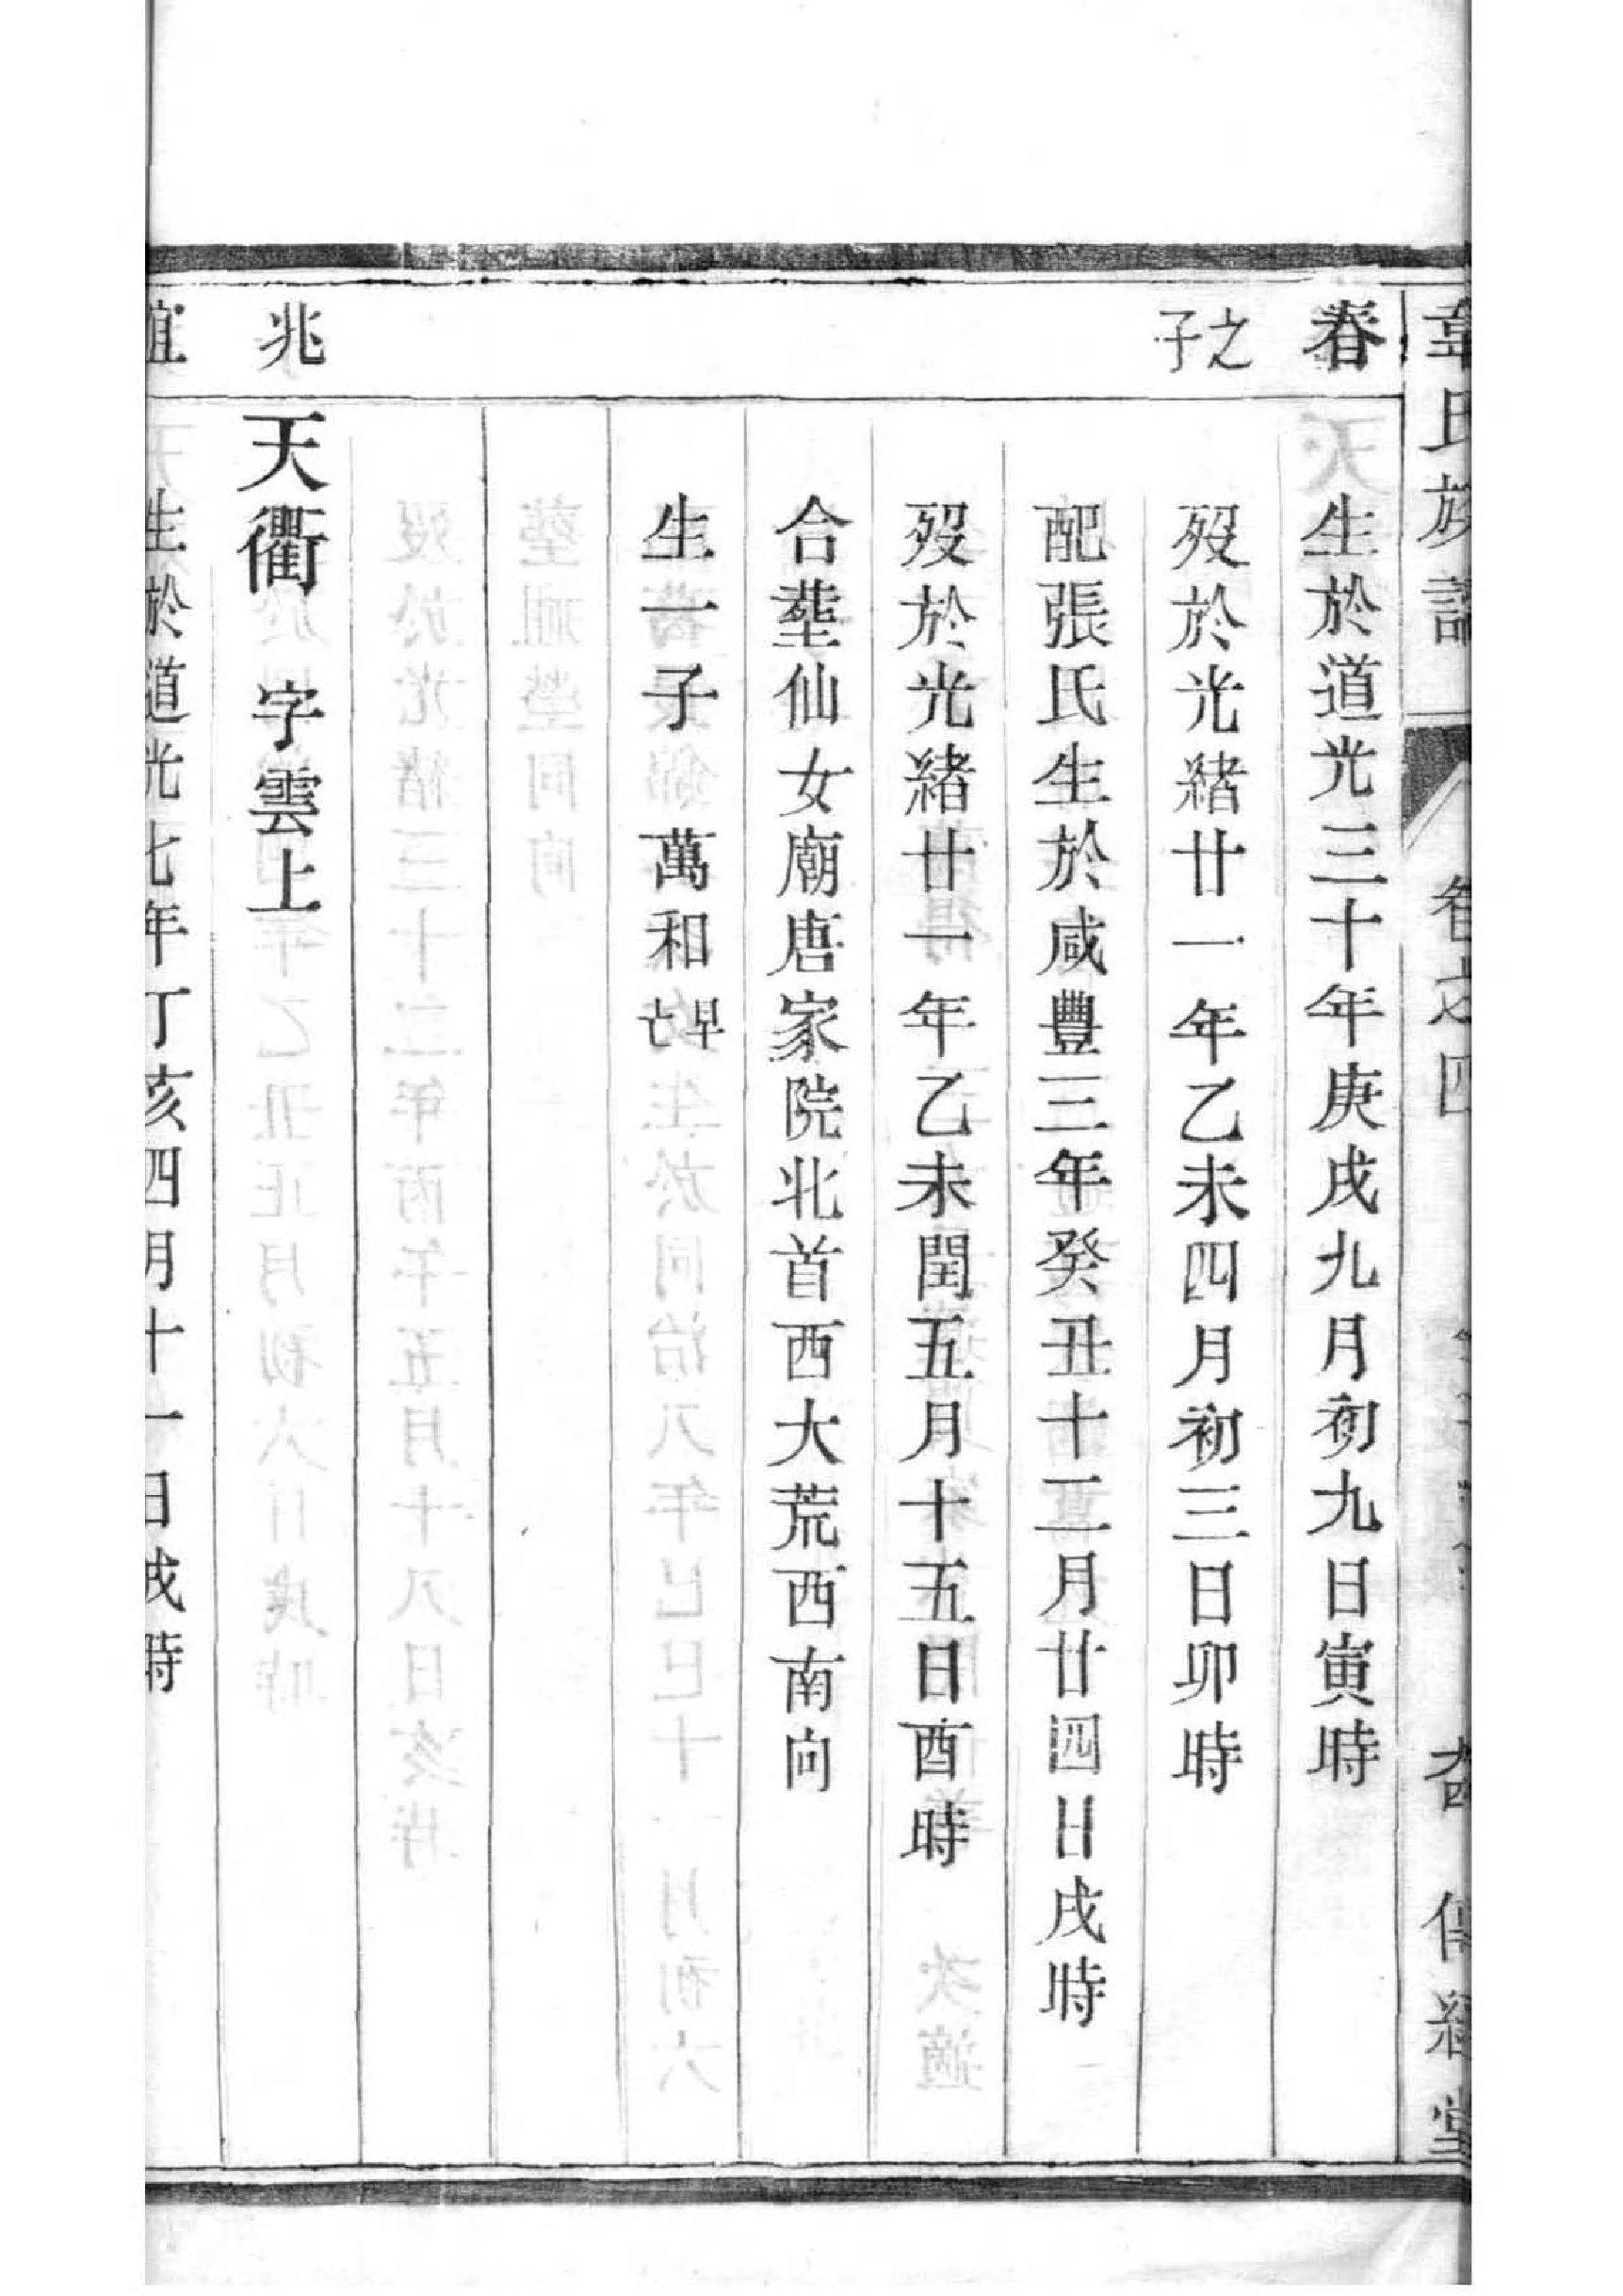 韋氏族譜
卷之四
傳經堂
春
生於道光三十年庚戌九月初九日寅時
之子
歿於光緒廿一年乙未四月初三日卯時
配張氏生於咸豐三年癸丑十二月廿四日戌時
歿於光緒廿一年乙未閏五月十五日酉時
合塟仙女廟唐家院北首西大荒西南向
生一子 萬和早亡
兆
天衢 字雲上
誼
生於道光七年丁亥四月十一日戌時